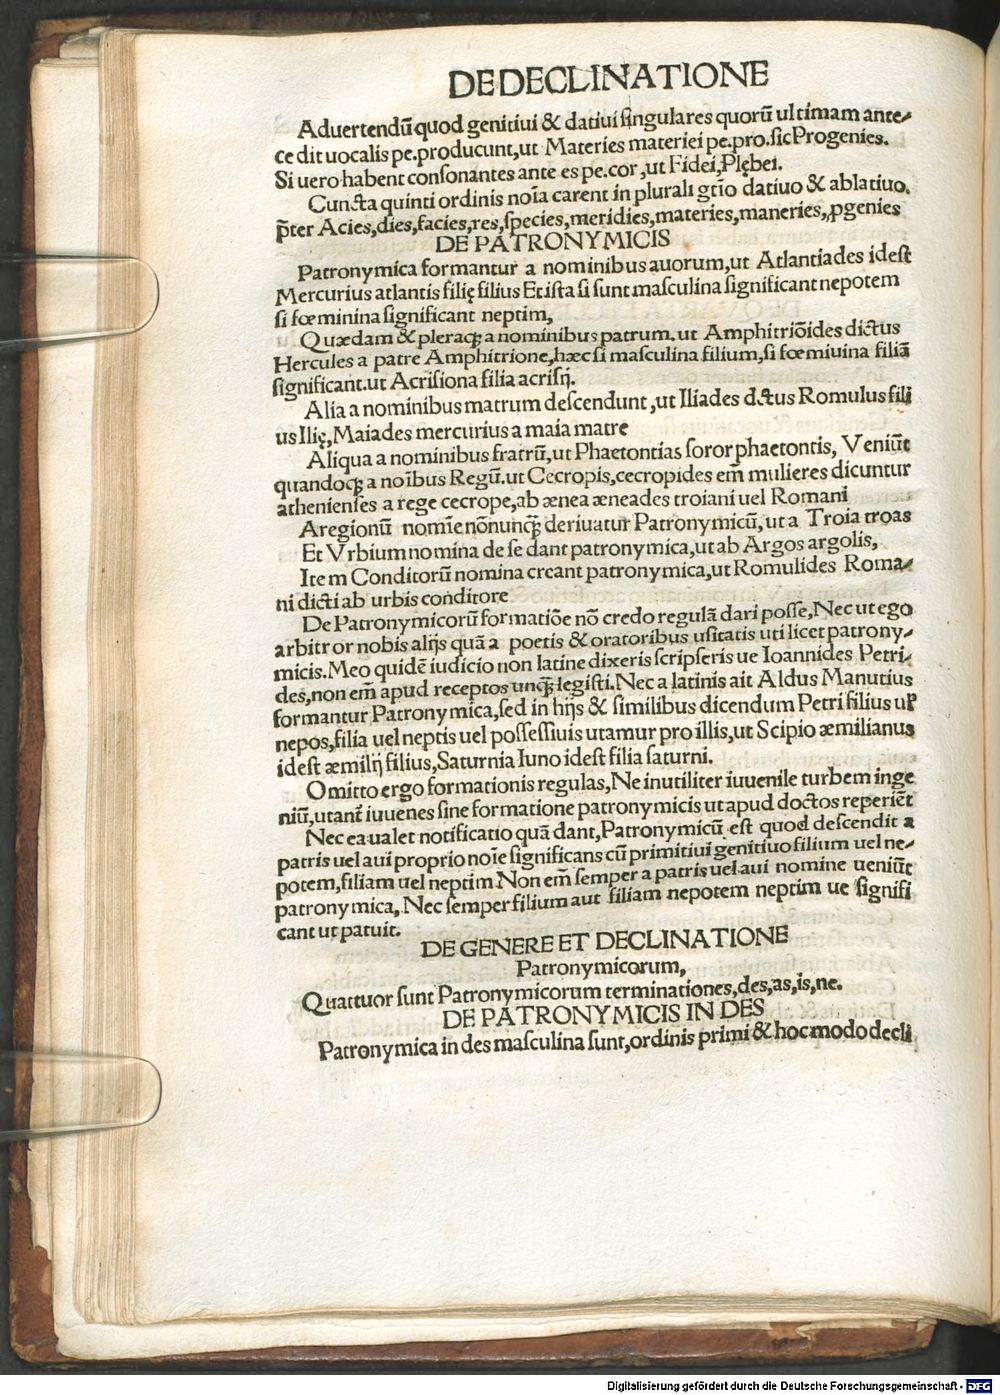 DE DECLINATIONE
Aduertendū quod genitiui & datiui singulares quorū ultimam ante-
cedit uocalis pe.producunt,ut Materies materiei pe.pro.sic Progenies.
Si uero habent consonantes ante es pe.cor,ut Fidei,Plębei.
Cuncta quinti ordinis noīa carent in plurali gtīo datiuo & ablatiuo.
p̄ter Acies,dies,facies,res,species,meridies,materies,maneries,ꝓgenies
DE PATRONYMICIS
Patronymica formantur a nominibus auorum,ut Atlantiades idest
Mercurius atlantis filię filius Et ista si sunt masculina significant nepotem
si fœminina significant neptim,
Quædam & pleraqꝫ a nominibus patrum.ut Amphitriōides dictus
Hercules a patre Amphitrione,hæc si masculina filium,si fœmiuina filiā
significant.ut Acrisiona filia acrisij.
Alia a nominibus matrum descendunt,ut Iliades dictus Romulus fili
us Ilię,Maiades mercurius a maia matre
Aliqua a nominibus fratrū,ut Phaetontias soror phaetontis, Veniūt
quandoqꝫ a noībus Regū.ut Cecropis,cecropides em̄ mulieres dicuntur
athenienses a rege cecrope,ab ænea æneades troiani uel Romani
A regionū nomīe nōnunqꝫ̄ deriuatur Patronymicū,ut a Troia troas
Et Vrbium nomina de se dant patronymica,ut ab Argos argolis,
Item Conditorū nomina creant patronymica,ut Romulides Roma-
ni dicti ab urbis conditore
De Patronymicorū formatiōe nō credo regulā dari posse,Nec ut ego
arbitror nobis alijs quā a poetis & oratoribus usitatis uti licet patrony-
micis.Meo quidē iudicio non latine dixeris scripseris ue Ioannides Petri-
des,non em̄ apud receptos unqꝫ̄ legisti.Nec a latinis ait Aldus Manutius
formantur Patronymica,sed in hijs & similibus dicendum Petri filius ul̄
nepos,filia uel neptis uel possessiuis utamur pro illis,ut Scipio æmilianus
idest æmilij filius,Saturnia Iuno idest filia saturni.
Omitto ergo formationis regulas,Ne inutiliter iuuenile turbem inge
niū,utant̄ iuuenes sine formatione patronymicis ut apud doctos reperiēt
Nec ea ualet notificatio quā dant,Patronymicū est quod descendit a
patris uel aui proprio noīe significans cū primitiui genitiuo filium uel ne-
potem,filiam uel neptim.Non em̄ semper a patris uel aui nomine ueniūt
patronymica, Nec semper filium aut filiam nepotem neptim ue signifi
cant ut patuit.
DE GENERE ET DECLINATIONE
Patronymicorum,
Quattuor sunt Patronymicorum terminationes,des,as,is,ne.
DE PATRONYMICIS IN DES
Patronymica in des masculina sunt,ordinis primi & hoc modo decli
Digitalisierung gefördert durch die Deutsche Forschungsgemeinschaft - DFG